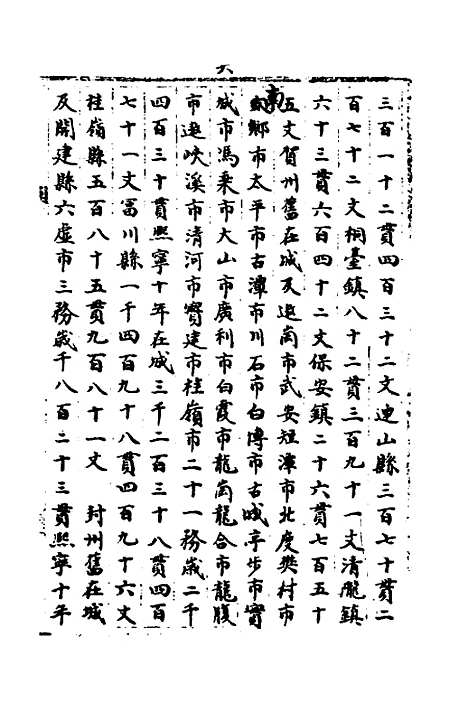 三百一十二貫四百三十二文連山縣三百七十貫二
百七十二文桐臺鎮八十二貫三百九十一文清瀧鎮
六十三貫六百四十二文保安鎮二十六貫七百五十
五文賀州舊在城及遶崗市武安短潭市北慶樊村市
南鄉市太平市古潭市川石市白博市古城亭步市寶
城市馮乗市大山市廣利市白霞市龍崗龍合市龍腹
市遶峽溪市清河市寶建市桂嶺市二十一務歲二千
四百三十貫熙寧十年在城三千二百三十八貫四百
七十一文富川縣一千四百九十八貫四百九十六文
桂嶺縣五百八十五貫九百八十一文　封州舊在城
及開建縣六虛市三務歲千八百二十三貫熙寧十年